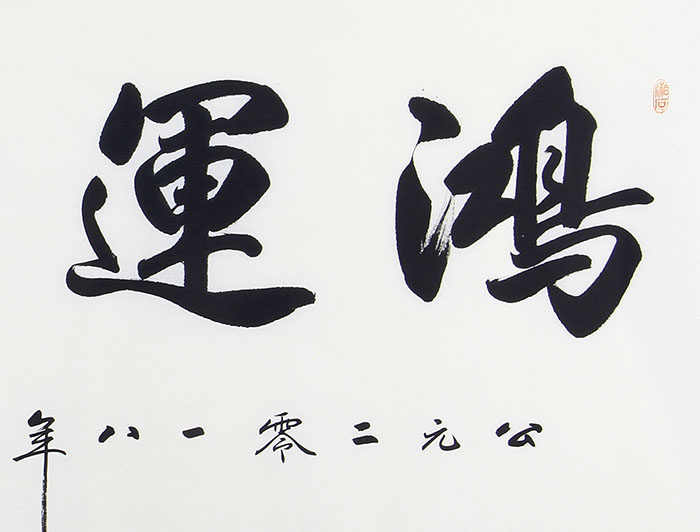 鴻運
公元二零一八年